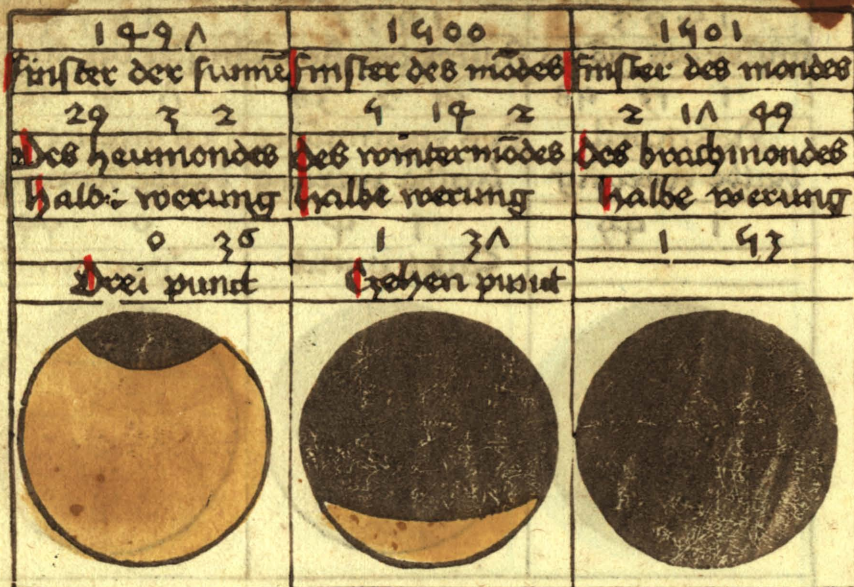 1497 1500 1501
finster der sunnē finster des mōdes finster des mondes
29 3 2 5 14 2 2 17 49
Des heumondes des wintermōdes des brachmondes
halbe werung halbe werung halbe werung
0 36 1 37 1 53
Drei punct Czehen punct